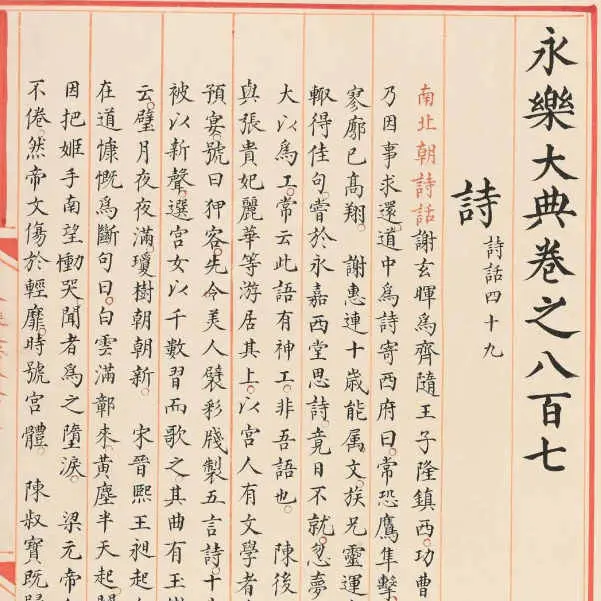 永樂大典卷之八百七
詩 詩話四十九
南北朝詩話謝玄暉為齊隨王子隆鎮西。功曹
乃因事求還。道中為詩寄西府曰。常恐鷹隼擊
寥廓已高翔。 謝惠連十歲能属文。族兄靈運
輙得佳句。嘗於永嘉西堂思詩。竟日不就。忽夢
大以為工。常云此語有神工。非吾語也。 陳後
與張貴妃麗華等游居其上。以宮人有文學者
預宴。號曰狎客。先令美人襞彩牋製五言詩。十
被以新聲。選宮女以千數習而歌之。其曲有玉
云。璧月夜夜滿。瓊樹朝朝新。 宋晉熙王昶起
在道慷慨為斷句曰。白雲滿鄣來。黃塵半天起。
因把姬手南望慟哭聞者為之墮淚。 梁元帝
不倦。然帝文傷於輕靡。時號宮體。 陳叔寶既